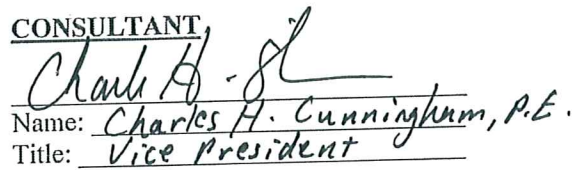 CONSULTANT
Name: Charles H. Cunningham, P.E.
Title: Vice President